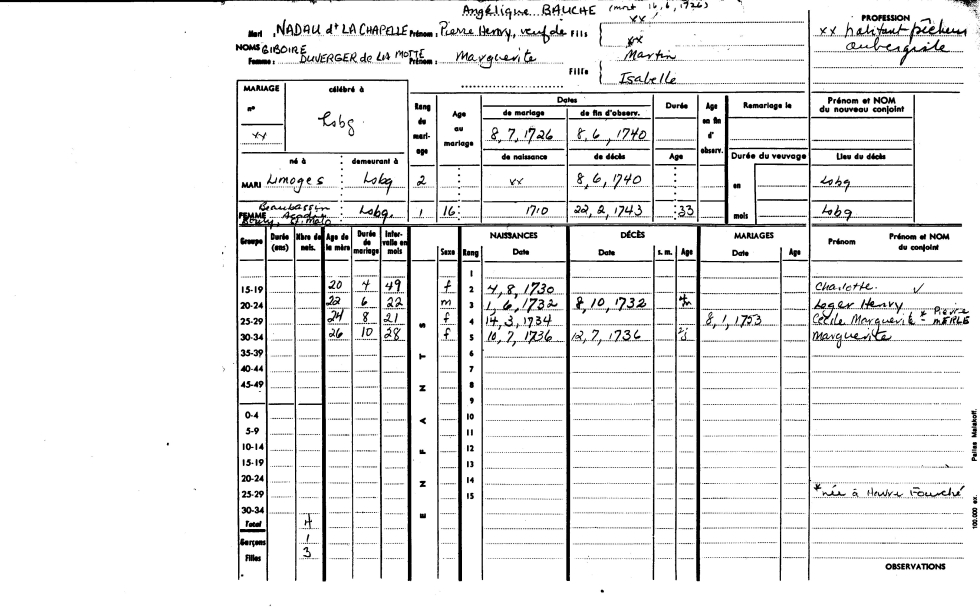 Angélique BAUCHE (mort 16, 6, 1726)
Mari , NADAU dt LA CHAPELLE Prénom : Pierre Henry, veuf de Fils xx
xx
NOMS GIBOIRE
Femme : DUVERGER de LA MOTTE Prénom : Marguerite Fille Martin
Isabelle
PROFESSION
xx habitant pêcheur
aubergiste
MARIAGE célébré à Rang de mariage Age au mariage Dates Durée Age en fin d' observ. Remariage le Prénom et NOM du nouveau conjoint
n° Lsbg. de mariage de fin d'observ.
xx 8, 7, 1726 8, 6, 1740
né à demeurant à de naissance de décès Age Durée du veuvage Lieu du décès
MARI Limoges Lsbg 2 xx 8, 6, 1740 en Lsbg
FEMME Beaubassin Acadie St. Malo Lsbg. 1 16 1710 22, 2, 1743 33 mois Lsbg
Groupe Durée (ans) Nbre de nais. Age de la mère Durée de mariage Intervalle en mois Sexe Rang NAISSANCES Date DÉCÈS Date s. m. Age MARIAGES Date Age Prénom Prénom et NOM du conjoint
E N F A N T S
1
15-19 20 4 49 f 2 4, 8, 1730 Charlotte ✓
20-24 22 6 22 m 3 1, 6, 1732 8, 10, 1732 4m Leger Henry
25-29 24 8 21 f 4 14, 3, 1734 8, 1, 1753 Cécile Marguerite * Pierre MERLE
30-34 26 10 28 f 5 10, 7, 1736 12, 7, 1736 2j Marguerite
35-39 6
40-44 7
45-49 8
9
0-4 10
5-9 11
10-14 12
15-19 13
20-24 14
25-29 15 * née à Havre Fourché
30-34
Total 4
Garçons 1
Filles 3
OBSERVATIONS
100.000 ex. Pallas Malakoff.